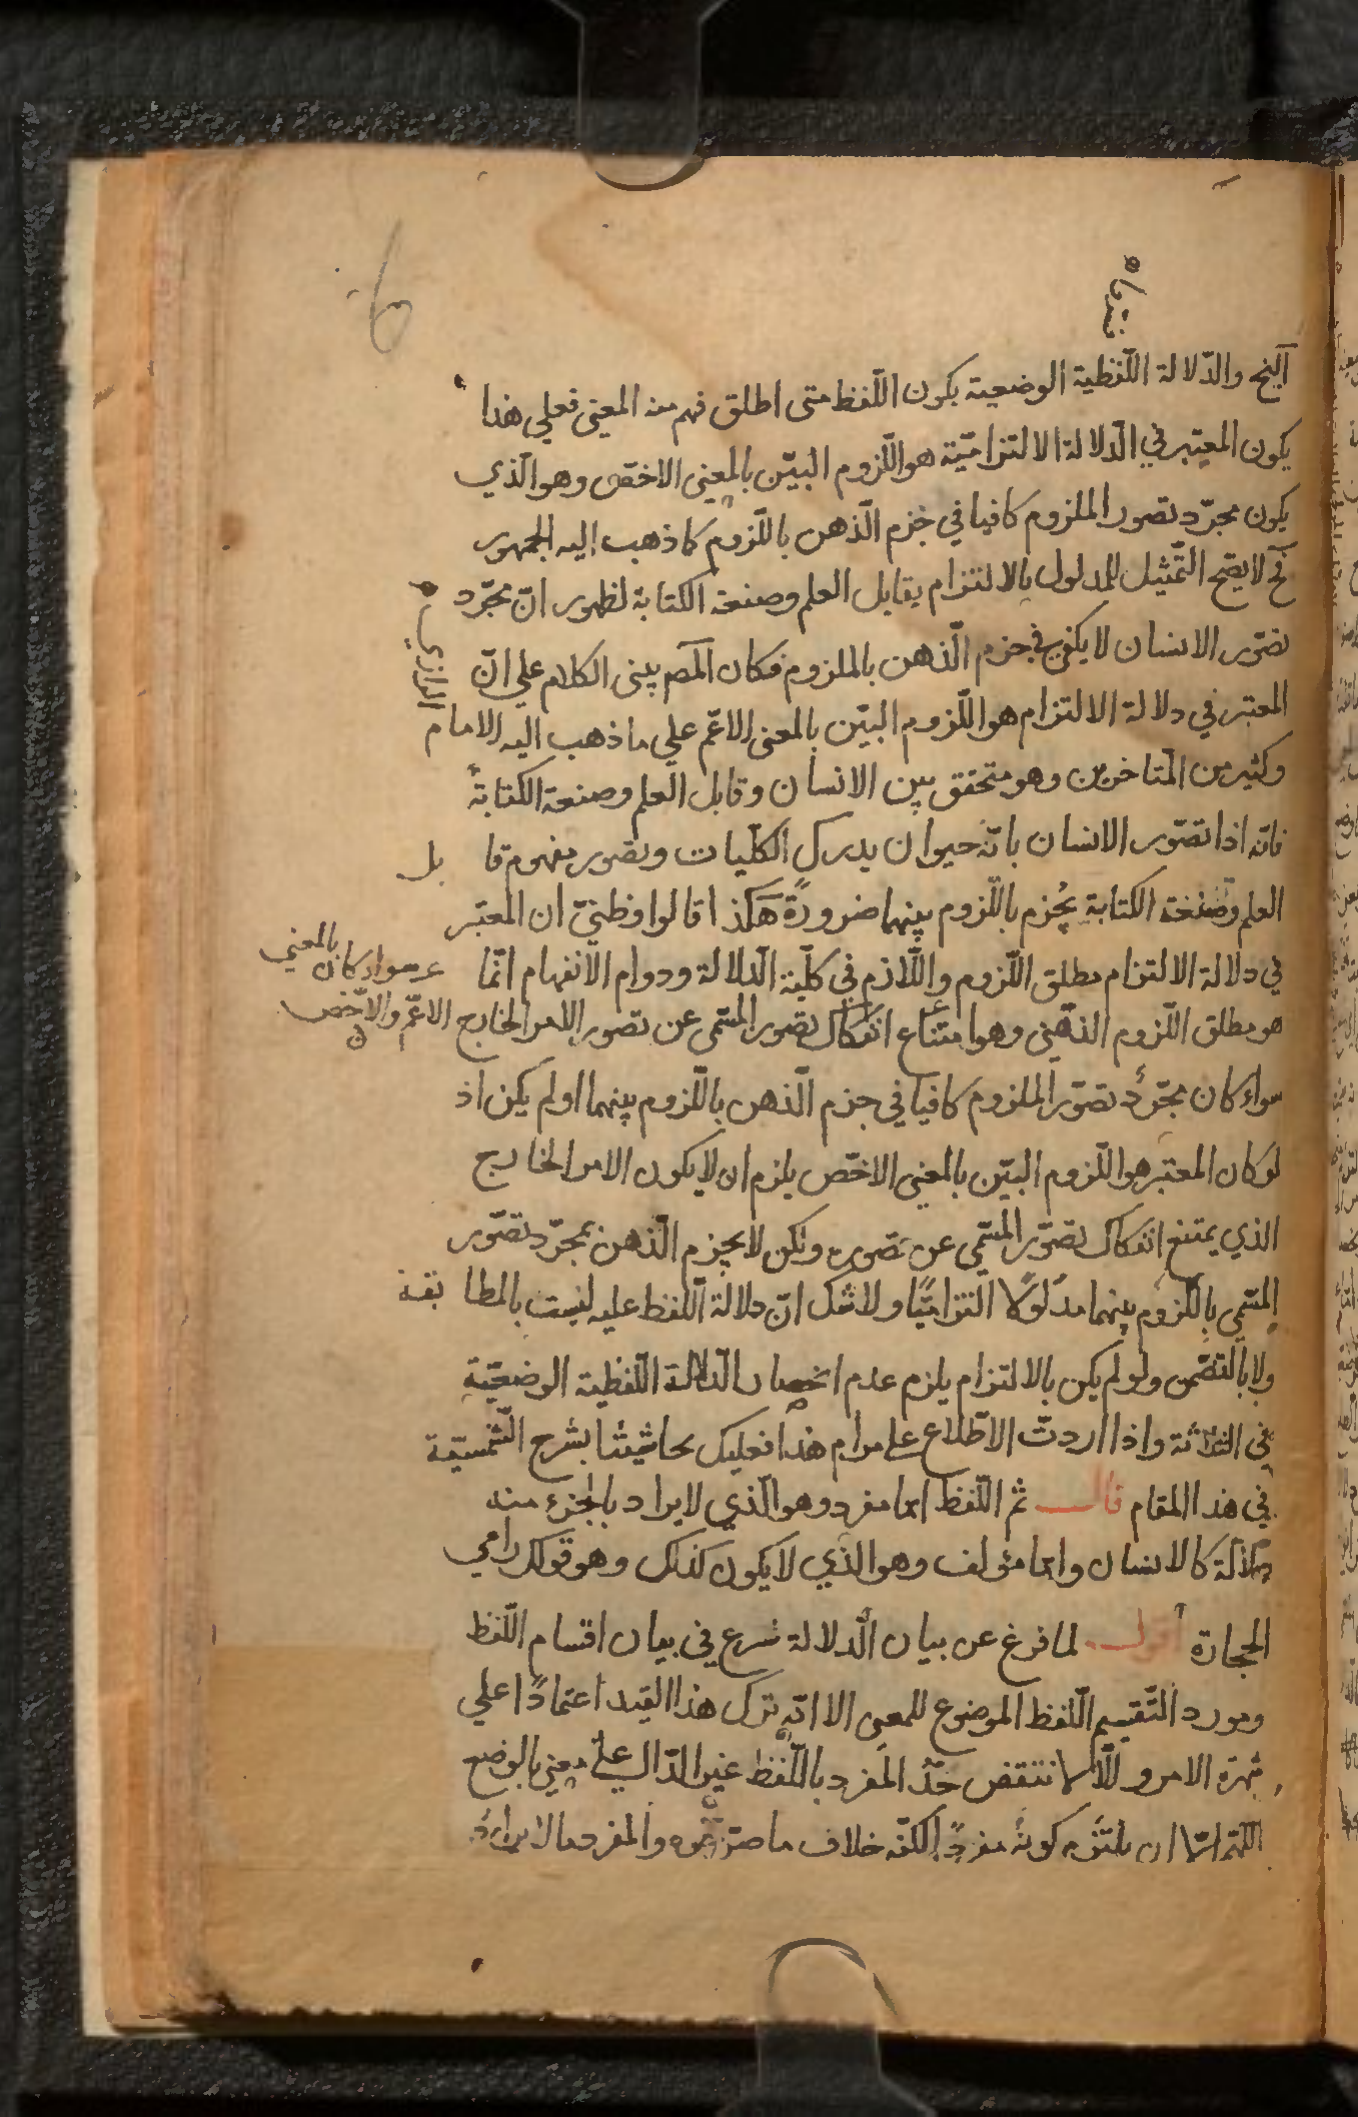 والدّلالة اللّفظية الوضعية بكون اللّفظ متى اطلق فهم منه المعنى فعلي هذا
يكون المعتبر في الدّلالة الالتزاميّة هو اللّزوم البيّن بالمعنى الاخصّ وهو الّذي
يكون مجرّد تصور الملزوم كافيا في جزم الّذهن باللّزوم كما ذهب اليه الجمهور
فح لا يصّح التّمثيل للمدلول بالالتزام بقابل العلم وصنعة الكتابة لظهور انّ مجرّد
تصّور الانسان لا يكفي في جزم الّذهن بالملزوم فكان المصّ يبنى الكلام علي انّ
المعتبر في دلالة الالتزام هو اللّزوم البيّن بالمعنى الاعّم علي ما ذهب اليه الامام
الرازي
وكثير من المتاخرين وهو متحقق بين الانسان وقابل العلم وصنعة الكتابة
فانّه اذا تصّور الانسان بانّه حيوان يدرك الكلّيات وتصور مفهوم قابل
العلم وصنعة الكتابة يجزم باللّزوم بينهما ضرورةً هكذا قالوا وظنّي ان المعتبر
في دلالة الالتزام مطلق اللّزوم واللّازم في كلّية الدّلالة ودوام الانفهام انّما
هو مطلق اللّزوم الذهني وهو امتناع انفكاك تصور المسّمى عن تصور الامر الخارج
سواء كان بالمعني
الاعّم والاخّص
سواء كان مجرّد تصوّر الملزوم كافيا في جزم الّذهن باللّزوم بينهما او لم يكن اذ
لو كان المعتبر هو اللّزوم البيّن بالمعني الاخّص يلزم ان لا يكون الامر الخارج
الذي يمتنع انفكاك تصوّر المسّمي عن تصوره ولكن لا يجزم الّذهن بمجرّد تصّور
المسّمي باللّزوم بينهما مدلولًا التزاميًّا ولا شك انّ دلالة اللّفظ عليه ليست بالمطابقة
ولا بالتضّمن ولو لم يكن بالالتزام يلزم عدم انحصار الدّلالة اللّفظية الوضعيّة
في الثلاثة واذا اردتّ الاطّلاع علي مرام هذا فعليك بحاشيتنا بشرح الشّمسيّة
في هذا المقام قال ثم اللّفظ امّا مفرد وهو الّذي لا يراد بالجزء منه
دلالة كالانسان وامّا مؤلف وهو الّذي لا يكون كذلك وهو قولك رامي
الحجارة أقول لما فرغ عن بيان الّدلالة شرع في بيان اقسام اللّفظ
ومورد التّقسيم اللّفظ الموضوع للمعنى الا انّه ترك هذا القيد اعتمادًا علي
شهرة الامر والّا لانتقض حدّ المفرد باللّفظ غير الدّال علي معنى بالوضع
اللّهّم امّا ان يلتزم كونه مفردًا لكنّه خلاف ما صرّحوه والمفرد ما لا يراد